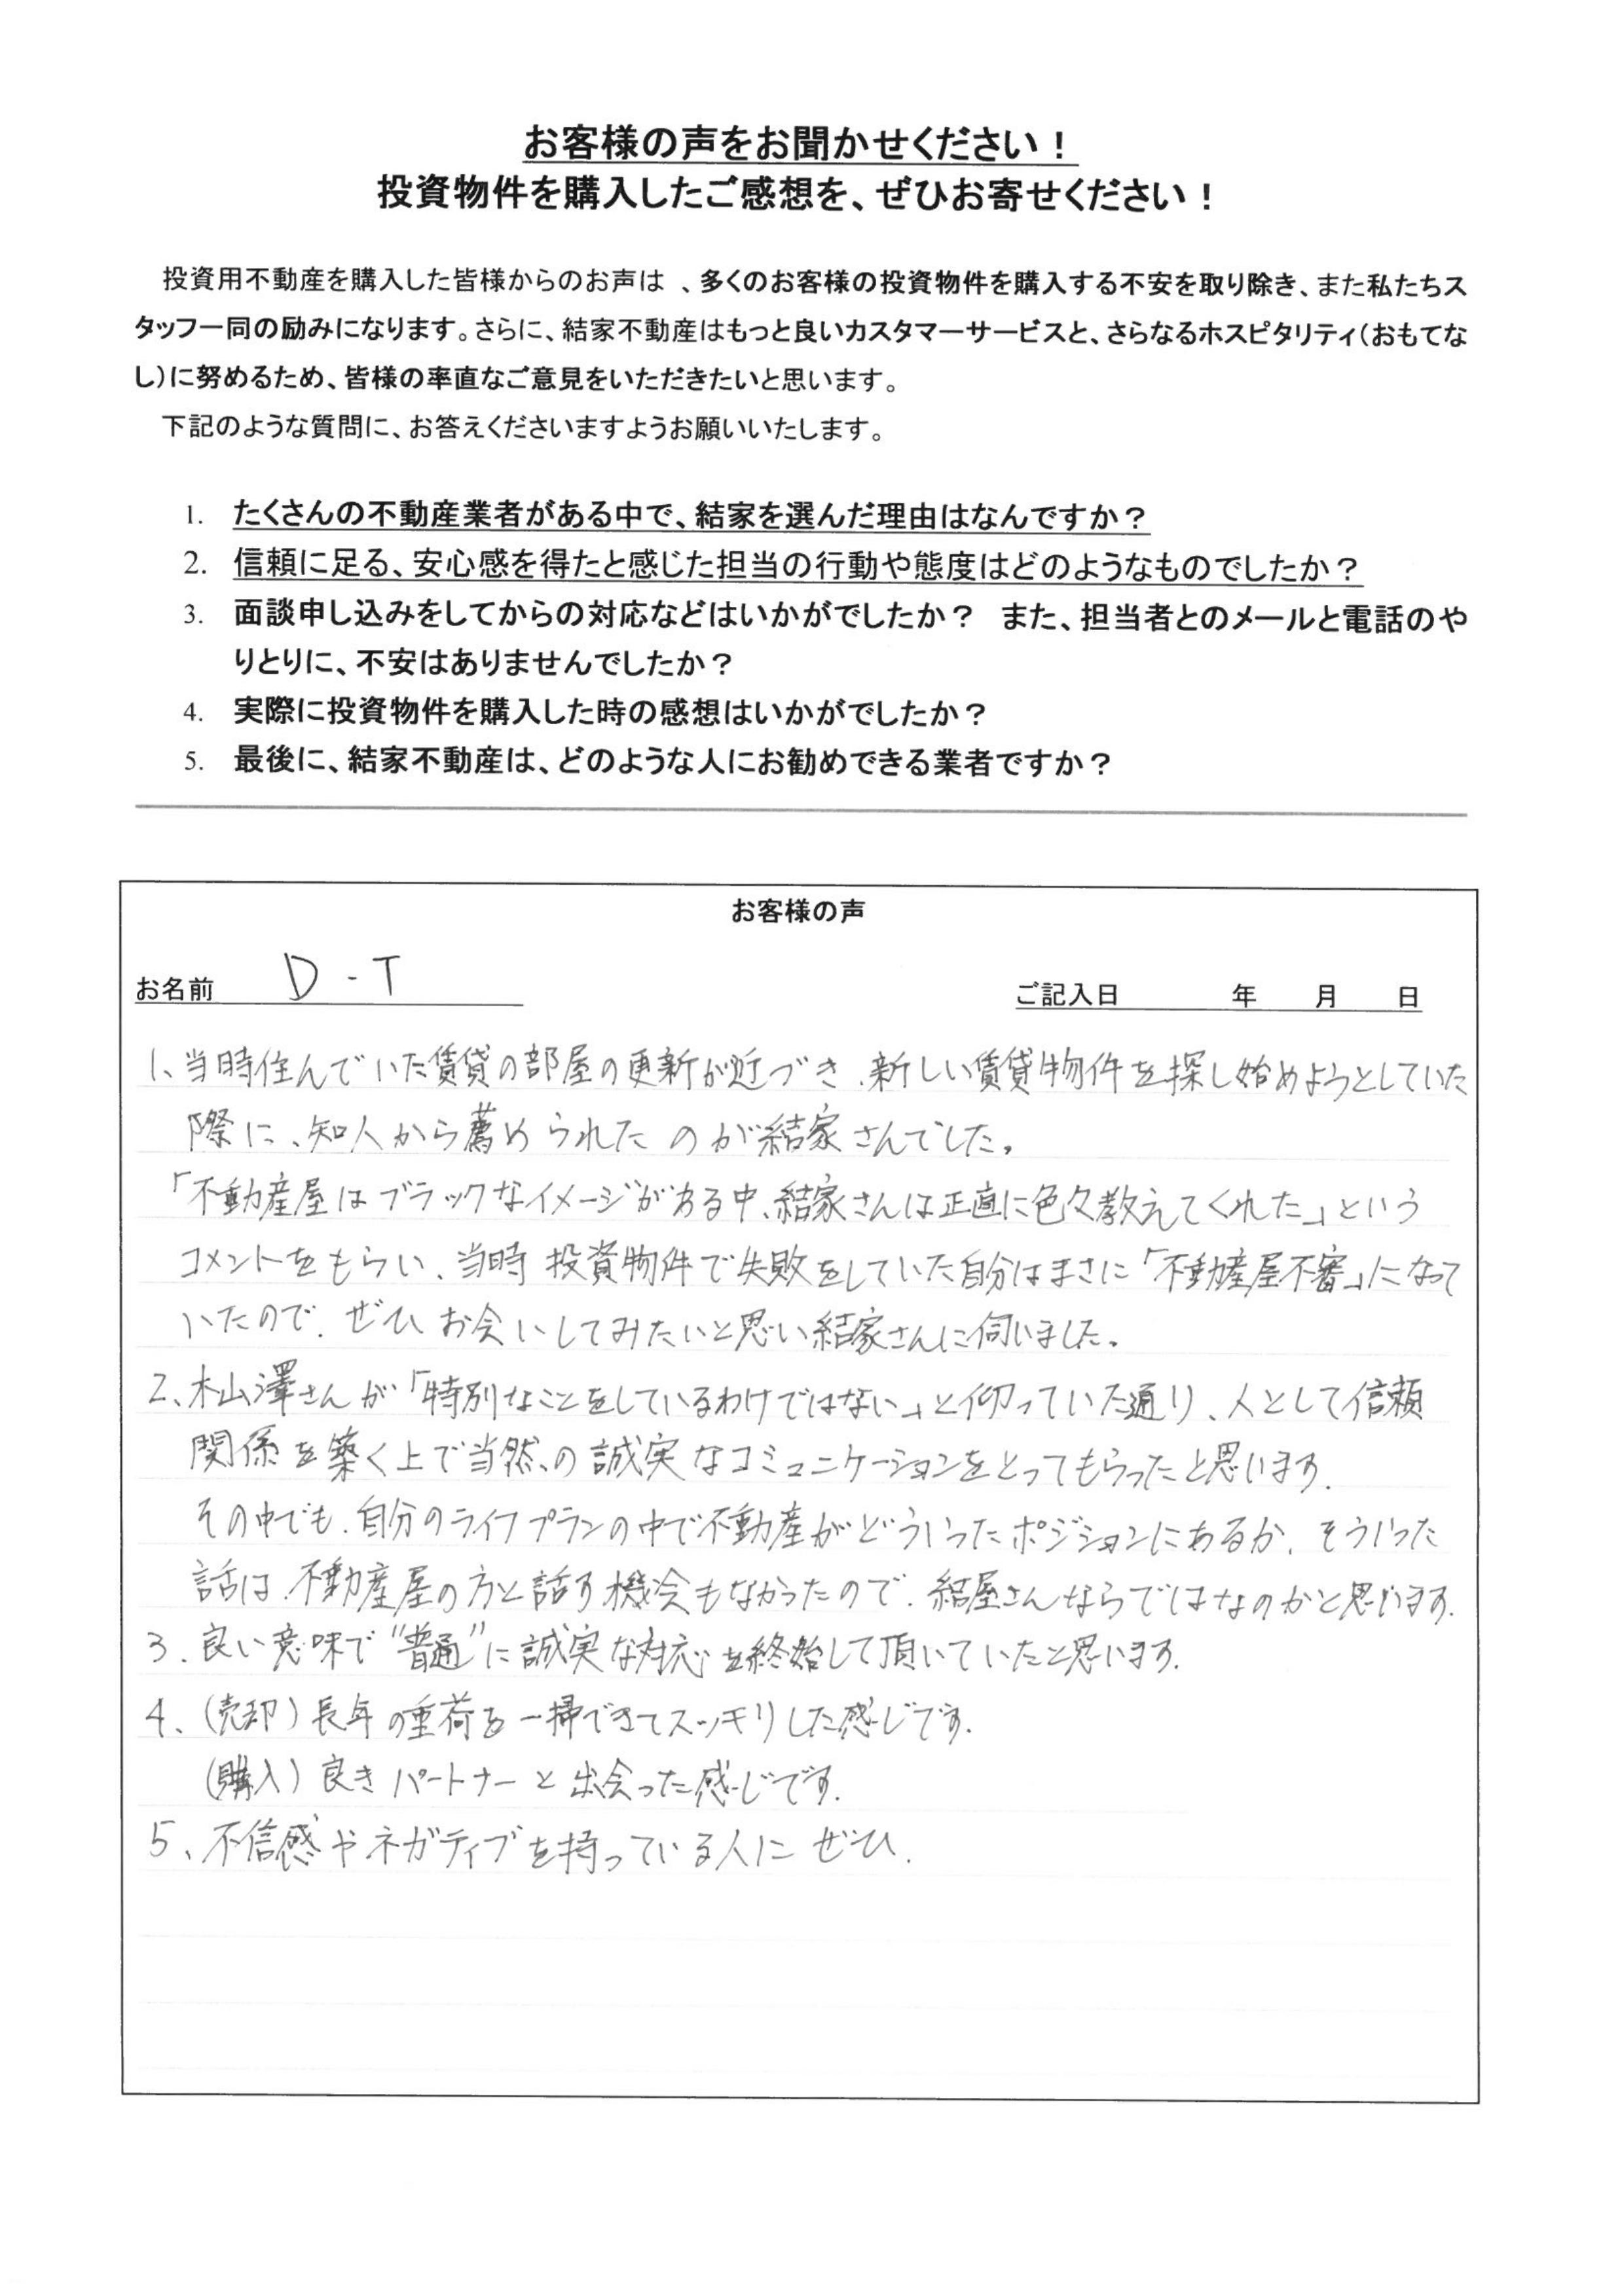 お客様の声をお聞かせください！
投資物件を購入したご感想を、ぜひお寄せください！
投資用不動産を購入した皆様からのお声は 、多くのお客様の投資物件を購入する不安を取り除き、また私たちス
タッフ一同の励みになります。さらに、結家不動産はもっと良いカスタマーサービスと、さらなるホスピタリティ（おもてな
し）に努めるため、皆様の率直なご意見をいただきたいと思います。
下記のような質問に、お答えくださいますようお願いいたします。
1. たくさんの不動産業者がある中で、結家を選んだ理由はなんですか？
2. 信頼に足る、安心感を得たと感じた担当の行動や態度はどのようなものでしたか？
3. 面談申し込みをしてからの対応などはいかがでしたか？ また、担当者とのメールと電話のや
りとりに、不安はありませんでしたか？
4. 実際に投資物件を購入した時の感想はいかがでしたか？
5. 最後に、結家不動産は、どのような人にお勧めできる業者ですか？
お客様の声
お名前 D-T ご記入日 年 月 日
1、当時住んでいた賃貸の部屋の更新が近づき、新しい賃貸物件を探し始めようとしていた
際に、知人から薦められたのが結家さんでした。
「不動産屋はブラックなイメージがある中、結家さんは正直に色々教えてくれた」という
コメントをもらい、当時投資物件で失敗をしていた自分はまさに「不動産屋不審」になって
いたので、ぜひお会いしてみたいと思い結家さんに伺いました。
2、木山澤さんが「特別なことをしているわけではない」と仰っていた通り、人として信頼
関係を築く上で当然の誠実なコミュニケーションをとってもらったと思います。
その中でも、自分のライフプランの中で不動産がどういったポジションにあるか、そういった
話は、不動産屋の方と話す機会もなかったので、結屋さんならではなのかと思います。
3、良い意味で"普通"に誠実な対応を終始して頂いていたと思います。
4、（売却）長年の重荷を一掃できてスッキリした感じです。
（購入）良きパートナーと出会った感じです。
5、不信感やネガティブを持っている人にぜひ。